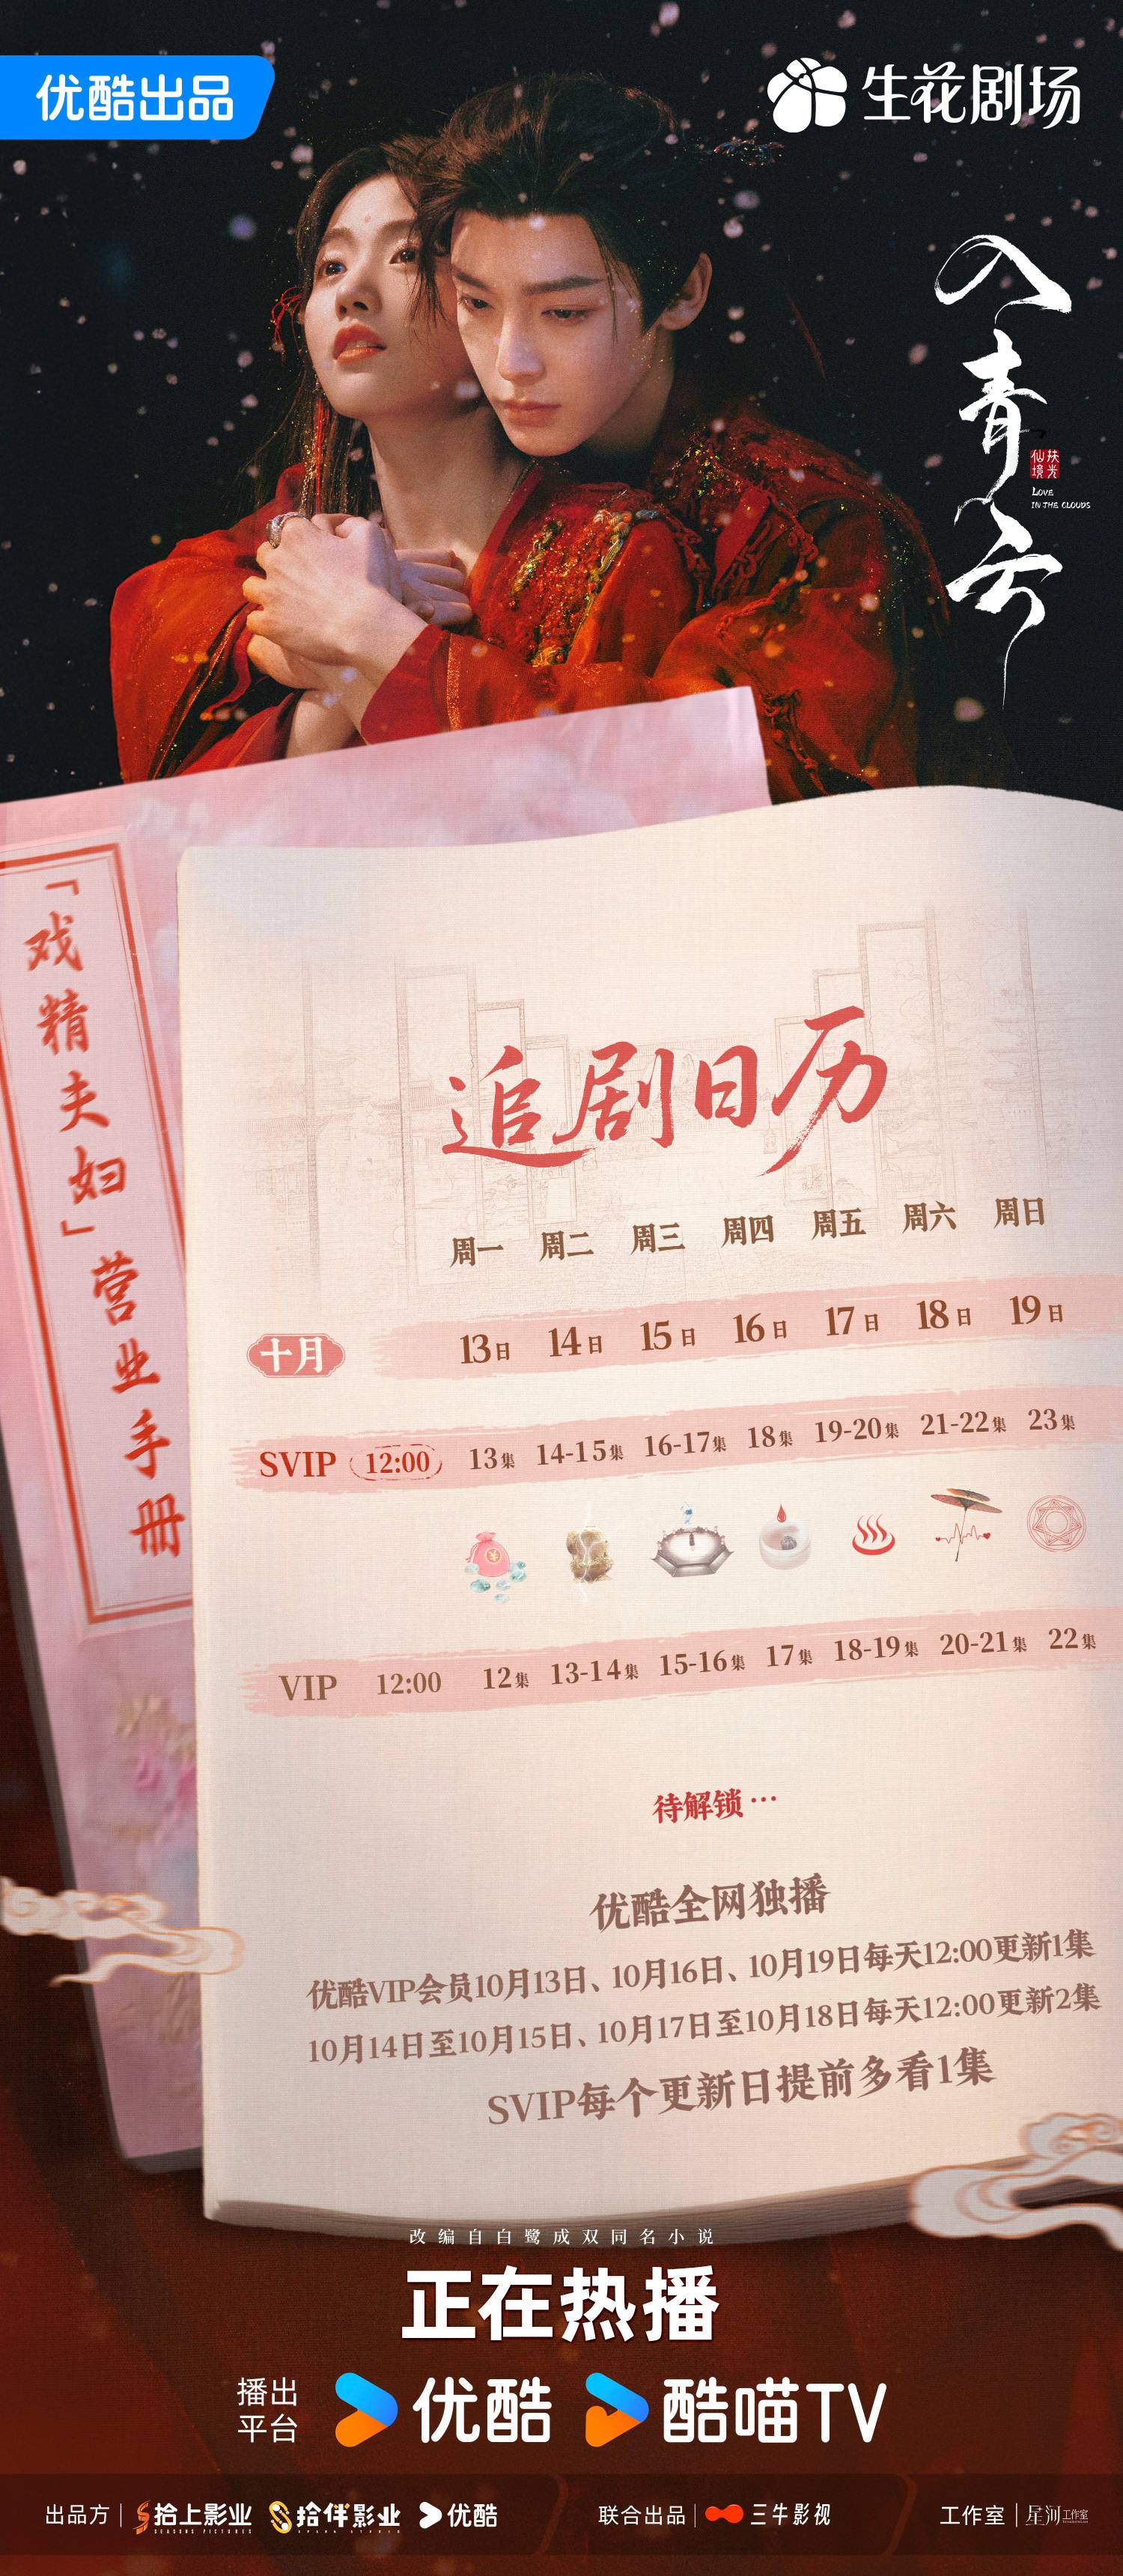 优酷出品
生花剧场
入青云
扶光
仙境
LOVE
IN THE CLOUDS
「戏精夫妇」营业手册
追剧日历
周一 周二 周三 周四 周五 周六 周日
十月 13日 14日 15日 16日 17日 18日 19日
SVIP 12:00 13集 14-15集 16-17集 18集 19-20集 21-22集 23集
VIP 12:00 12集 13-14集 15-16集 17集 18-19集 20-21集 22集
待解锁…
优酷全网独播
优酷VIP会员10月13日、10月16日、10月19日每天12:00更新1集
10月14日至10月15日、10月17日至10月18日每天12:00更新2集
SVIP每个更新日提前多看1集
改编自白鹭成双同名小说
正在热播
播出平台 优酷 酷喵TV
出品方 拾上影业 拾伴影业 优酷 联合出品 三牛影视 工作室 星河工作室